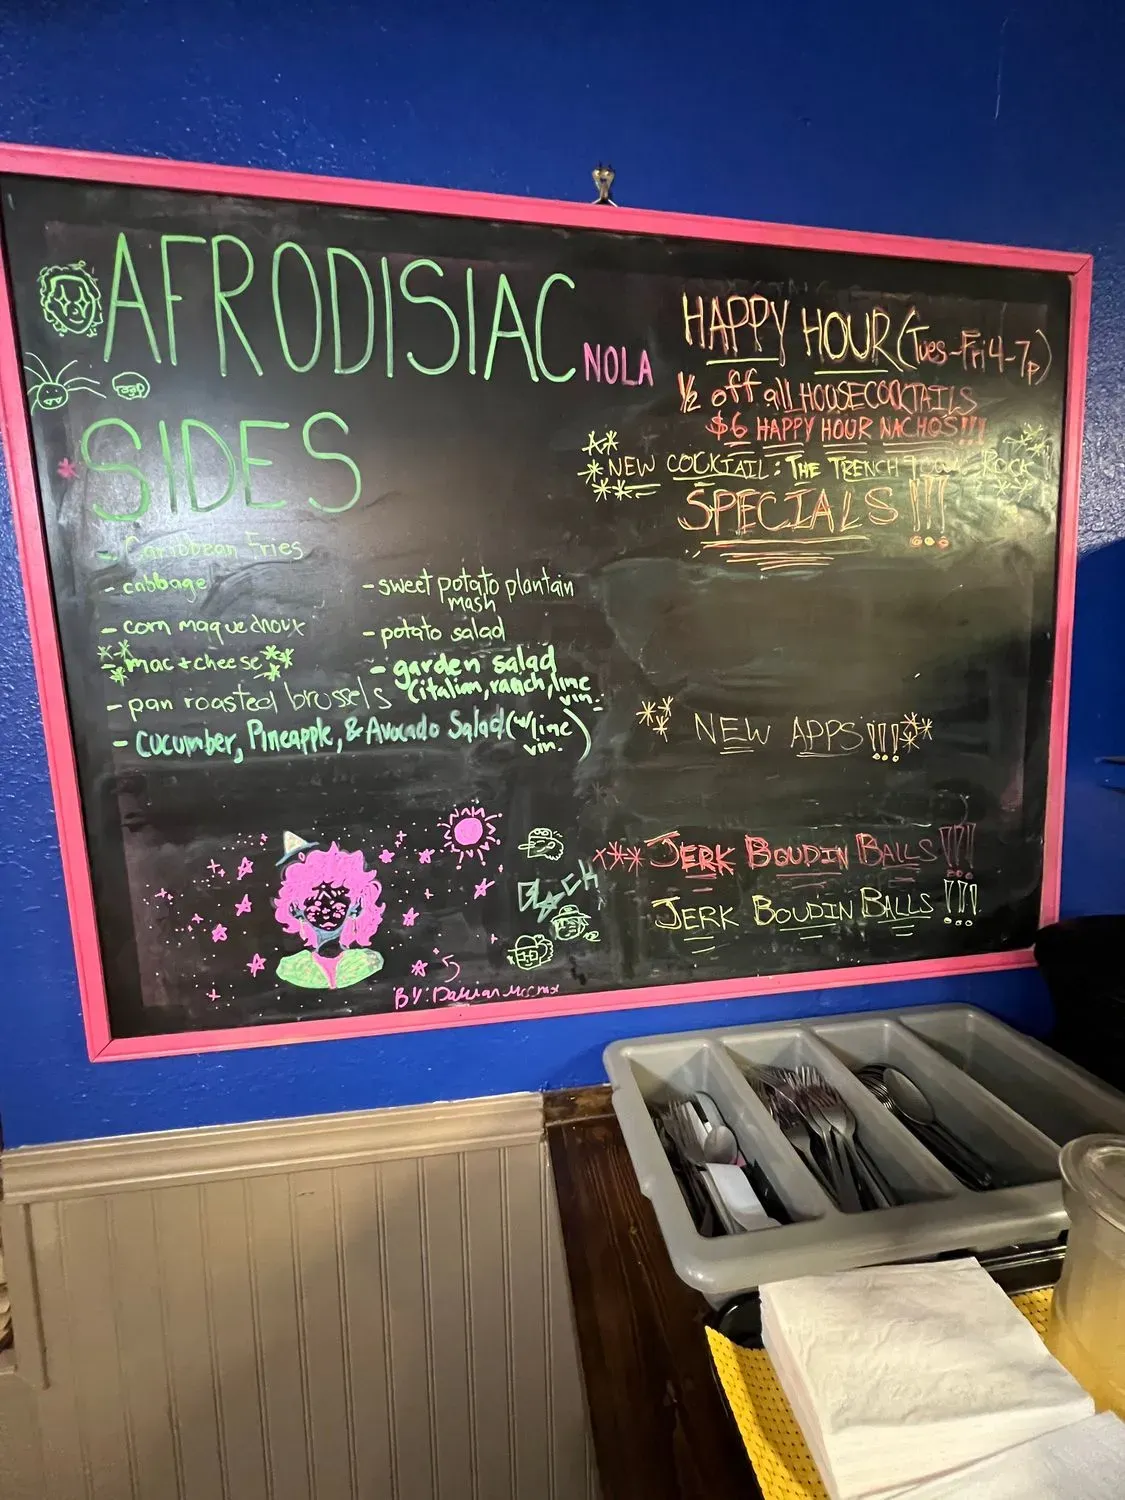 AFRODISIAC NOLA
SIDES
- Caribbean Fries
- cabbage
- corn maque choux
**mac + cheese**
- pan roasted brussels
- cucumber, Pineapple, & Avocado Salad (w/ lime vin.)
- sweet potato plantain
mash
- potato salad
- garden salad
(italian, ranch, lime
vin.
HAPPY HOUR (Tues-Fri 4-7p)
1/2 off all HOUSE COCKTAILS
$6 HAPPY HOUR NACHOS!!!
*NEW COCKTAIL: THE TRENCH ROCK
SPECIALS!!!
NEW APPS!!!
*** JERK BOUDIN BALLS!!!
JERK BOUDIN BALLS!!!
BLACK
BY: